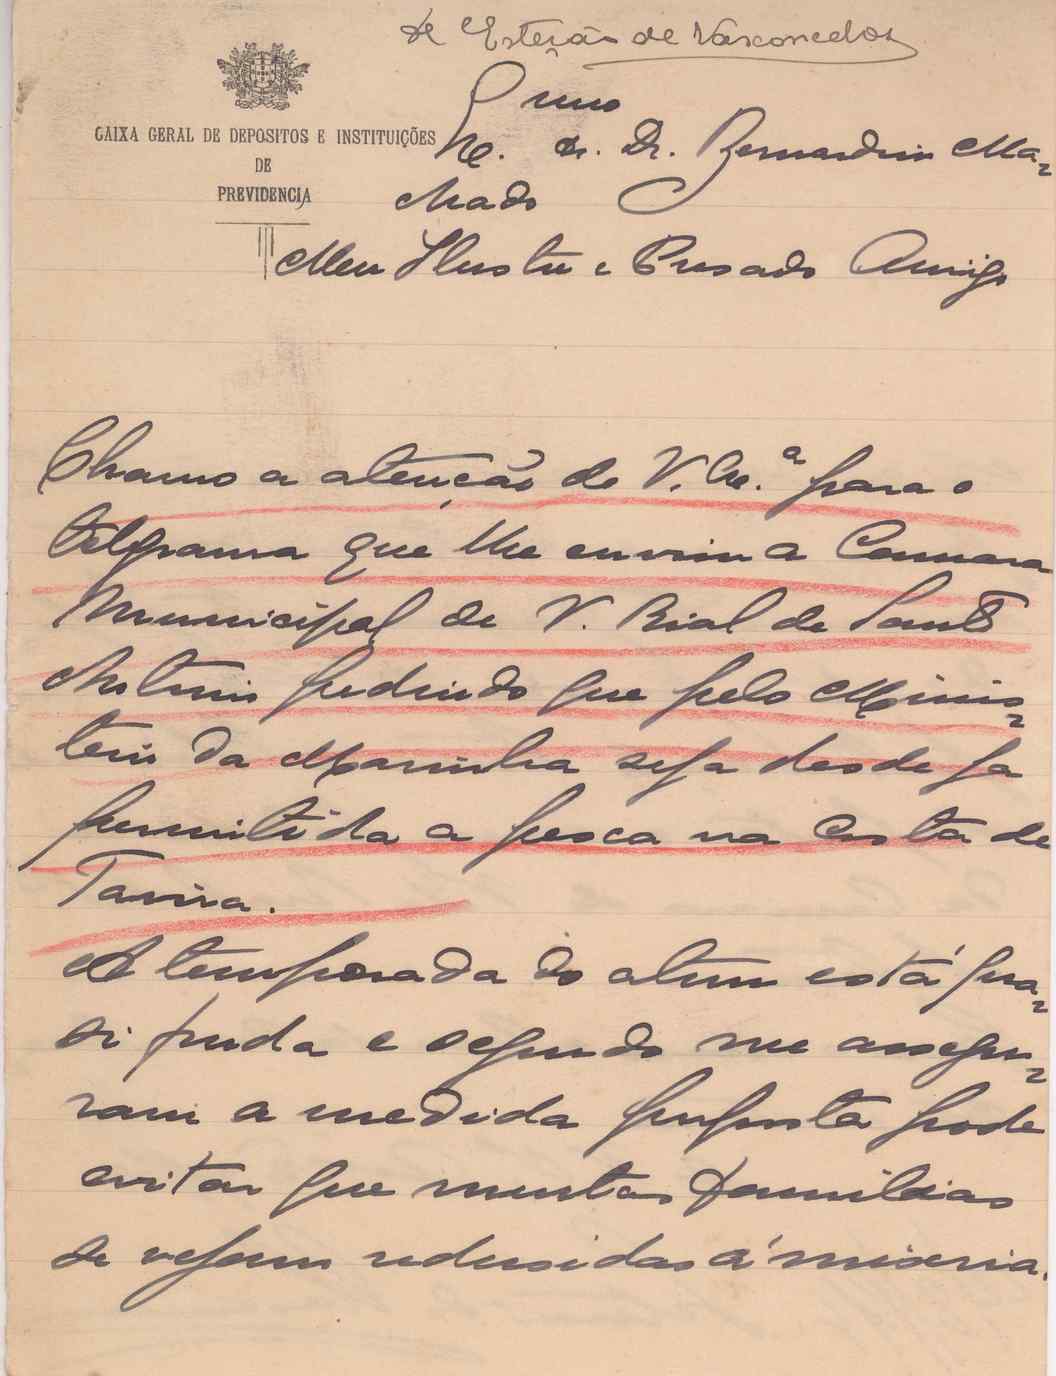 de Esteván de Vasconcelos
CAIXA GERAL DE DEPOSITOS E INSTITUIÇÕES
DE
PREVIDENCIA
Exmo
Sr. Dr. Bernardino Ma-
chado
Meu Ilustre e Presado Amigo
Chamo a atenção de V. Ex.ª para o
telegrama que lhe enviou a Camara
Municipal de V. Rial de Santo
Antonio pedindo que pelo Minis-
terio da Marinha seja desde ja
permitida a pesca na Costa de
Tavira.
A temporada do atum está qua-
si perdida e segundo me assegu-
ram a medida proposta pode
evitar que muitas familias
se vejam redusidas á miseria.